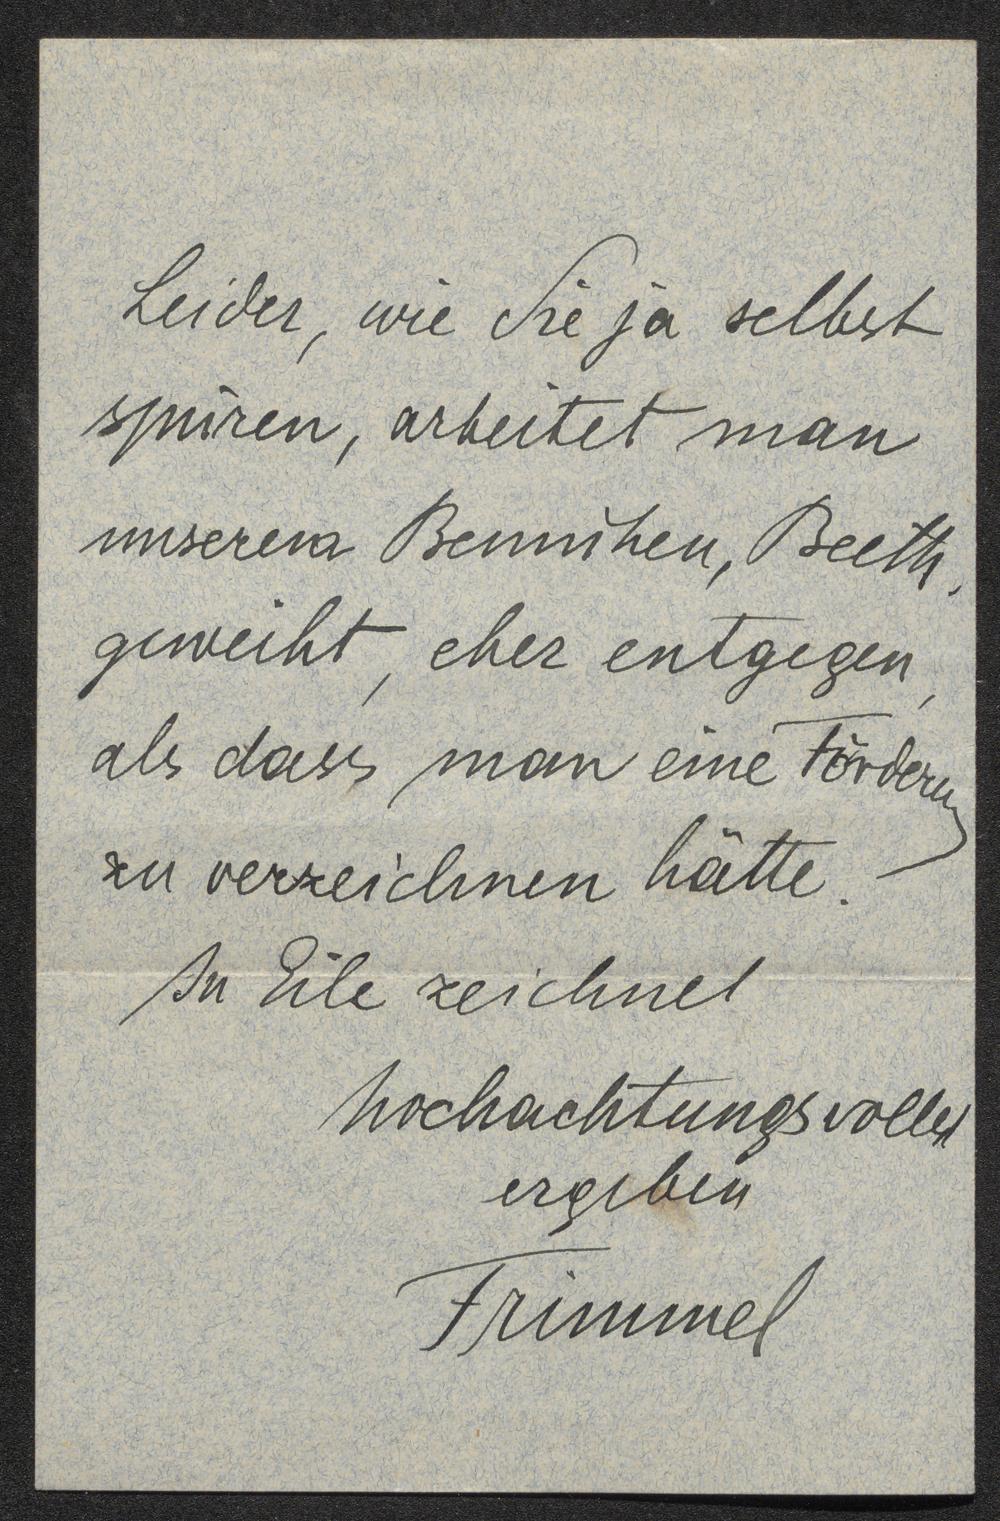 Leider, wie Sie ja selbst
spüren, arbeitet man
unserem Bemühen, Beeth.
geweiht, eher entgegen,
als dass man eine Förderung
zu verzeichnen hätte.
In Eile zeichnet
hochachtungsvollst
ergeben
Frimmel